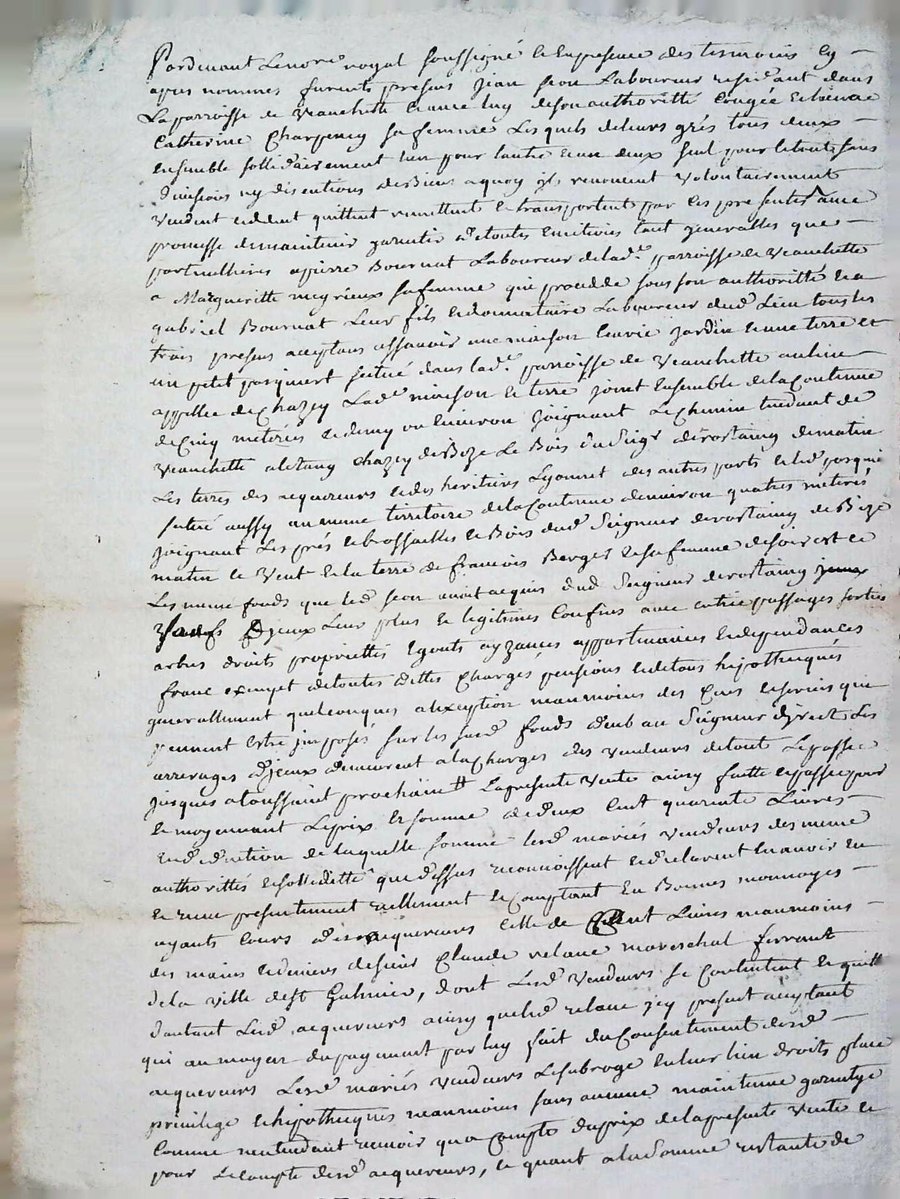 Pardevant Lenore royal soussigné et En presence des tesmoins Cy
apres nommes furent presens Jean Laboureur residant dans
La parroisse de Veauchette Et avec luy de son authoritté Congée et Licence
Catherine Charpenay sa femme Lesquels de leurs grés tous deux
Ensemble sollidairement L'un pour L'autre et un deux seul pour le tout sans
divisions ny discutions de Biens a quoy ils renoncent Volontairement
Vendent cedent quittent remettent et transportent par ces presentes avec
promesse de maintenir garentir de toutes evictions tant generalles que
particulheres a pierre Bournat Laboureur de lad.e parroisse de Veauchette
a Margueritte megrieux sa femme qui procedde sous son authoritté et a
gabriel Bournat Leur fils et donnataire Laboureur dud Lieu tous les
trois presens acceptans assavoir une maison Jardin et une terre et
un petit pasquiert scitué dans lad.e parroisse de Veauchette au lieu
appellée de Chazey Lad.e maison et terre joint Ensemble de la Contenue
de Cinq meterés et demy ou Environ Joignant Le Chemin tendant de
Veauchette a de Bize Le Bois du Seigr de matin
Les terres des acquereurs et des heritiers Lyonnet des autres parts et led pasquié
scitué aussy au mesme territoire de la Contenue d'environ quatres meterés
joignant Les prés et le Bois dud Seigneur de de Bize
matin et Vent et la terre de francois Berger et sa femme de soir est ce
Les meme fonds que led avoit acquis dud Seigneur de
d'jceux Leur plus et legitimes Confins avec entrée passages sorties
arbres droits proprietés Egouts ayzances appartenances et dependances
franc exempt de toutes dettes Charges pensions et de tous hipotheques
generallement quelconques a l'exception neanmoins des Cens et servis que
peuvent Estre imposés sur les susd fonds deub au Seigneur direct Les
arrerages d'jceux demeurent a la Charges des Vendeurs de tout Le passé
jusques a toussaint prochain La presente Vente ainsy faitte et passée pour
et moyennant Le prix et somme de deux Cent quarente Livres
En dedution de laquelle somme lesd mariés Vendeurs des meme
authorittés et sollidittée que dessus reconnoissent et declarent En avoir Eu
et receu presentement réellement et Comptant En Bonnes monnoyes
ayants Cours desd acquereurs Celle de Cent Livres neanmoins
des mains et deniers de sieur Claude relave mareschal ferrant
de la Ville de St Galmier, dont Lesd Vendeurs se Contentent et quitte
d'autant Lesd acquereurs ainsy que led relave jcy present acceptant
qui au moyen du payement par luy fait du Consentement desd
acquereurs Lesd mariés Vendeurs Le subroge En leur lieu droits place
privilege et hipotheques neanmoins sans aucune maintenue garentye
Comme n'entendant recevoir qu'a Compte du prix de la presente Vente et
pour Le Compte desd acquereurs, et quant a la Somme restante de